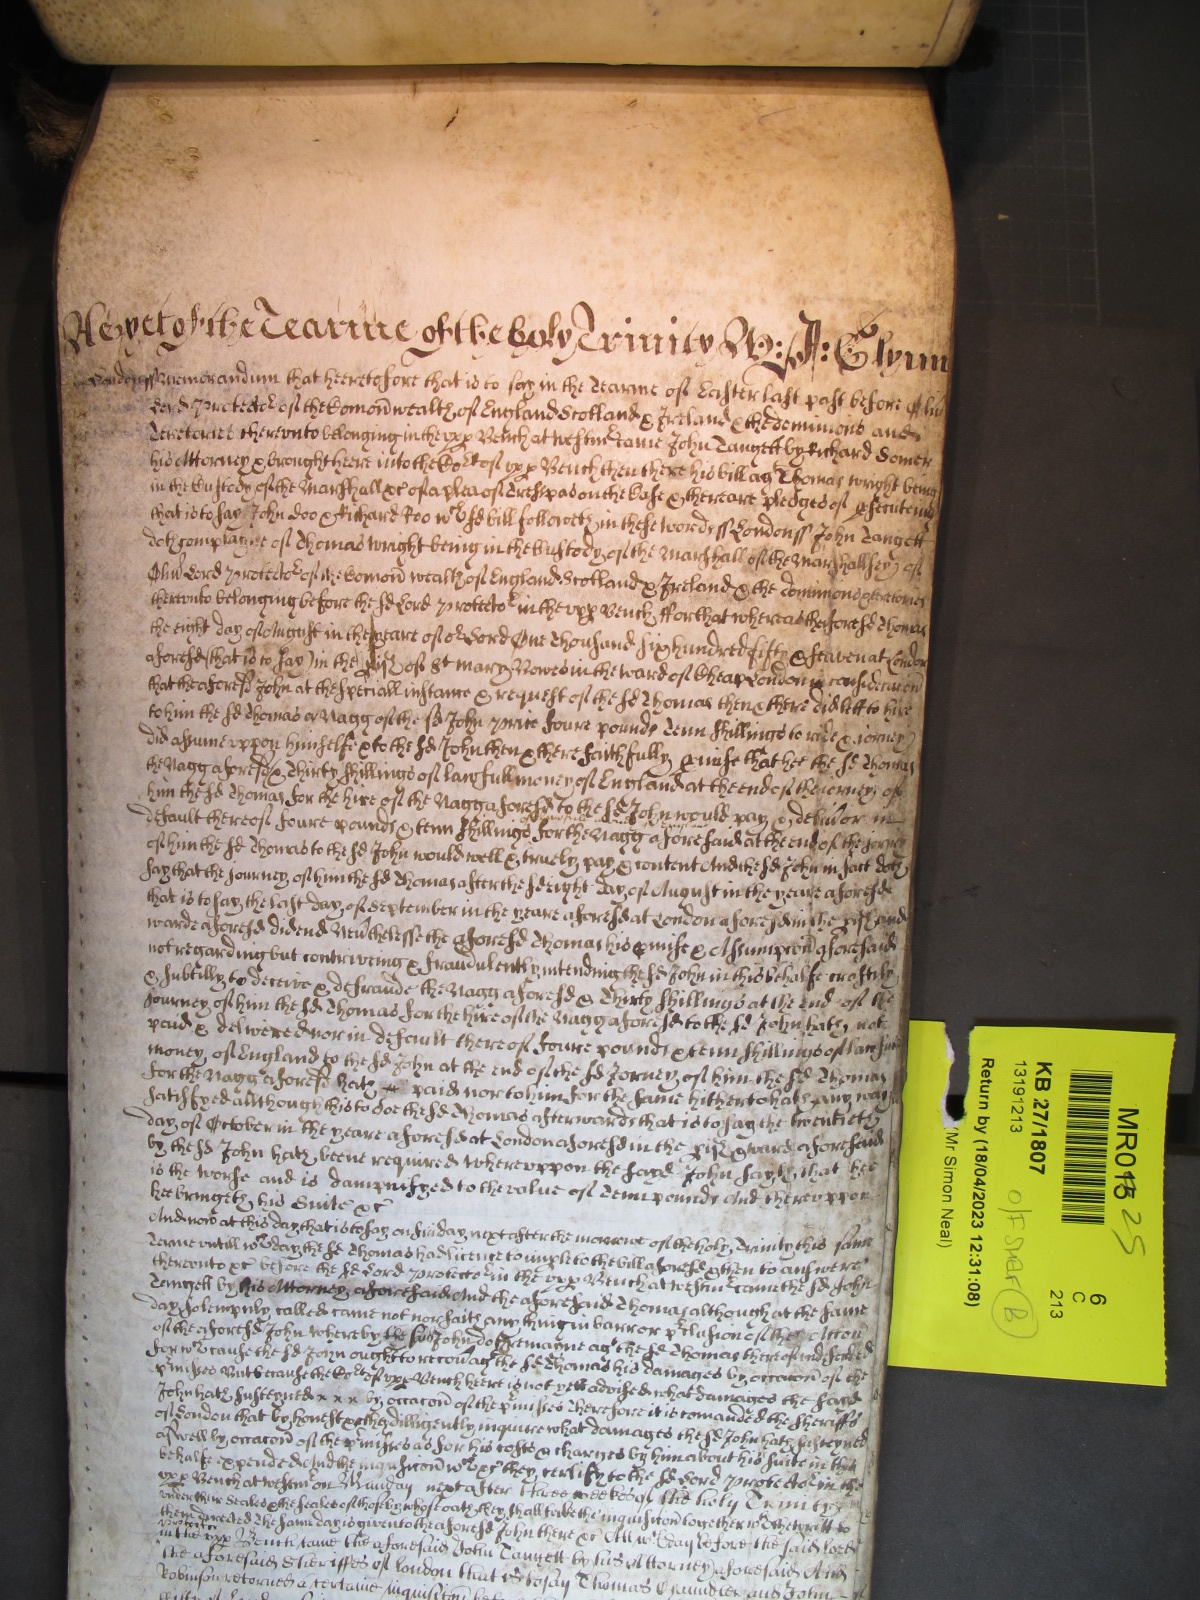 As yet of the Tearme of the holy Trinity W: J: Glynn
London ss Memorandum that heeretofore that is to say in the Tearme of Easter last past before Oliv
Lord Protector of the Comon wealth of England Scotland & Ireland & the dominions and
Teretories thereonto belonging in the upp Bench at Westmr Came John Tangett by Richard Somer
his Attorney & brought heere into the Cort of upp Bench then there his bill agt Thomas wright being
in the Custody of the Marshall &c of a plea of Trespas on the Case & there are pledges of psecuteing
that is to say John Doo & Richard Roo wch sd bill followeth in these words ss London ss John Tangett
doth complayne of Thomas wright being in the Custody of the Marshall of the Marshallsey of
Oliv Lord Protector of the Comon wealth of England Scotland & Ireland & the dominions & teretories
thereonto belonging before the sd Lord Protector in the upp Bench ffor that whereas the aforesd Thomas
the eight day of August in the yeare of or Lord One thousand six hundred fifty & seaven at London
aforesd (that is to say) in the pish of St mary Bowes in the ward of Cheap London in consideracon
that the aforesd John at the speciall instance & request of the sd Thomas then & there did lett to hire
to him the sd Thomas a Nagg of the sd John price foure pounds Tenn shillings to ride a Jorney
did assume uppon himselfe & to the sd John then & there faithfully pmise that hee the sd Thomas
the Nagg aforesd & thirty shillings of lawfull money of England at the end of the jorney of
him the sd Thomas for the hire of the Nagg aforesd to the sd John would pay & deliver or in
default thereof foure pounds & tenn shillings for the Nagg aforesaid at the end of the jorney
of him the sd Thomas to the sd John would well & truely pay & content And the sd John in fact doth
say that the journey of him the sd Thomas after the sd eight day of August in the yeare aforesd
that is to say the last day of September in the yeare aforesd at London aforesd in the pish and
warde aforesd did end Nevthelesse the aforesd Thomas his pmise & Assumpcon aforesaid
not regarding but contriveing & fraudulently intending the sd John in this behalfe craftily
& subtilly to deceive & defraude the Nagg aforesd & thirty shillings at the end of the
Journey of him the sd Thomas for the hire of the Nagg aforesd to the sd John hath not
paid & delivered nor in default thereof foure pounds & tenn shillings of lawfull
money of England to the sd John at the end of the sd Jorney of him the sd Thomas
for the Nagg aforesd hath paid nor to him for the same hitherto hath any way
satisfyed allthough this to doe the sd Thomas afterwards that is to say the twentieth
day of October in the yeare aforesd at London aforesd in the pish & ward aforesaid
by the sd John hath beene required whereuppon the sayd John sayth that hee
is the worse and is dampnifyed to the value of Tenn pounds And thereuppon
hee bringeth his Suite &c
And now at this day that is to say on friday next after the morrow of the holy Trinity this same
Tearme untill wch day the sd Thomas had licence to imple to the bill aforesd & then to answere
thereonto &c before the sd Lord Protector in the upp Bench at westmr came the sd John
Tangett by his Attorney aforesaid And the aforesaid Thomas although at the same
day solempnly called came not nor saith any thing in barr or pclusion of the Accon
of the aforesd John whereby the said John doth remaine agt the sd Thomas thereof undefended
for wch cause the sd John ought to recov agt the sd Thomas his damages by occacon of the
pmisses But because the Cort of upp Bench heere is not yett advised what damages the sayd
John hath susteyned x x x by occacon of the pmisses Therefore it is comanded the Sheriffs
of London that by honest &c they dilligently inquire what damages the sd John hath susteyned
aswell by occacon of the pmisses as for his costs & charges by him about his suite in this
behalfe expended And the inquisicon wch &c they certify to the sd Lord Protector in the
upp Bench at westmr on Munday next after three weekes of the holy Trinity
under their Seales & the seales of those by whose oath they shall take the inquisicon together wth the writt to
them directed The same day is given to the aforesd John there &c Att wch day before the said Lord
Protector
in the upp Bench came the aforesaid John Tangett by his Attorney aforesaid And
the aforesaid Sheriffes of London that is to say Thomas Chaundler and John
Robinson retorned a certaine inquisicon
MR013 25
6
C
213
KB 27/1807
13191213
Return by (18/04/2023 12:31:08)
(Mr Simon Neal)